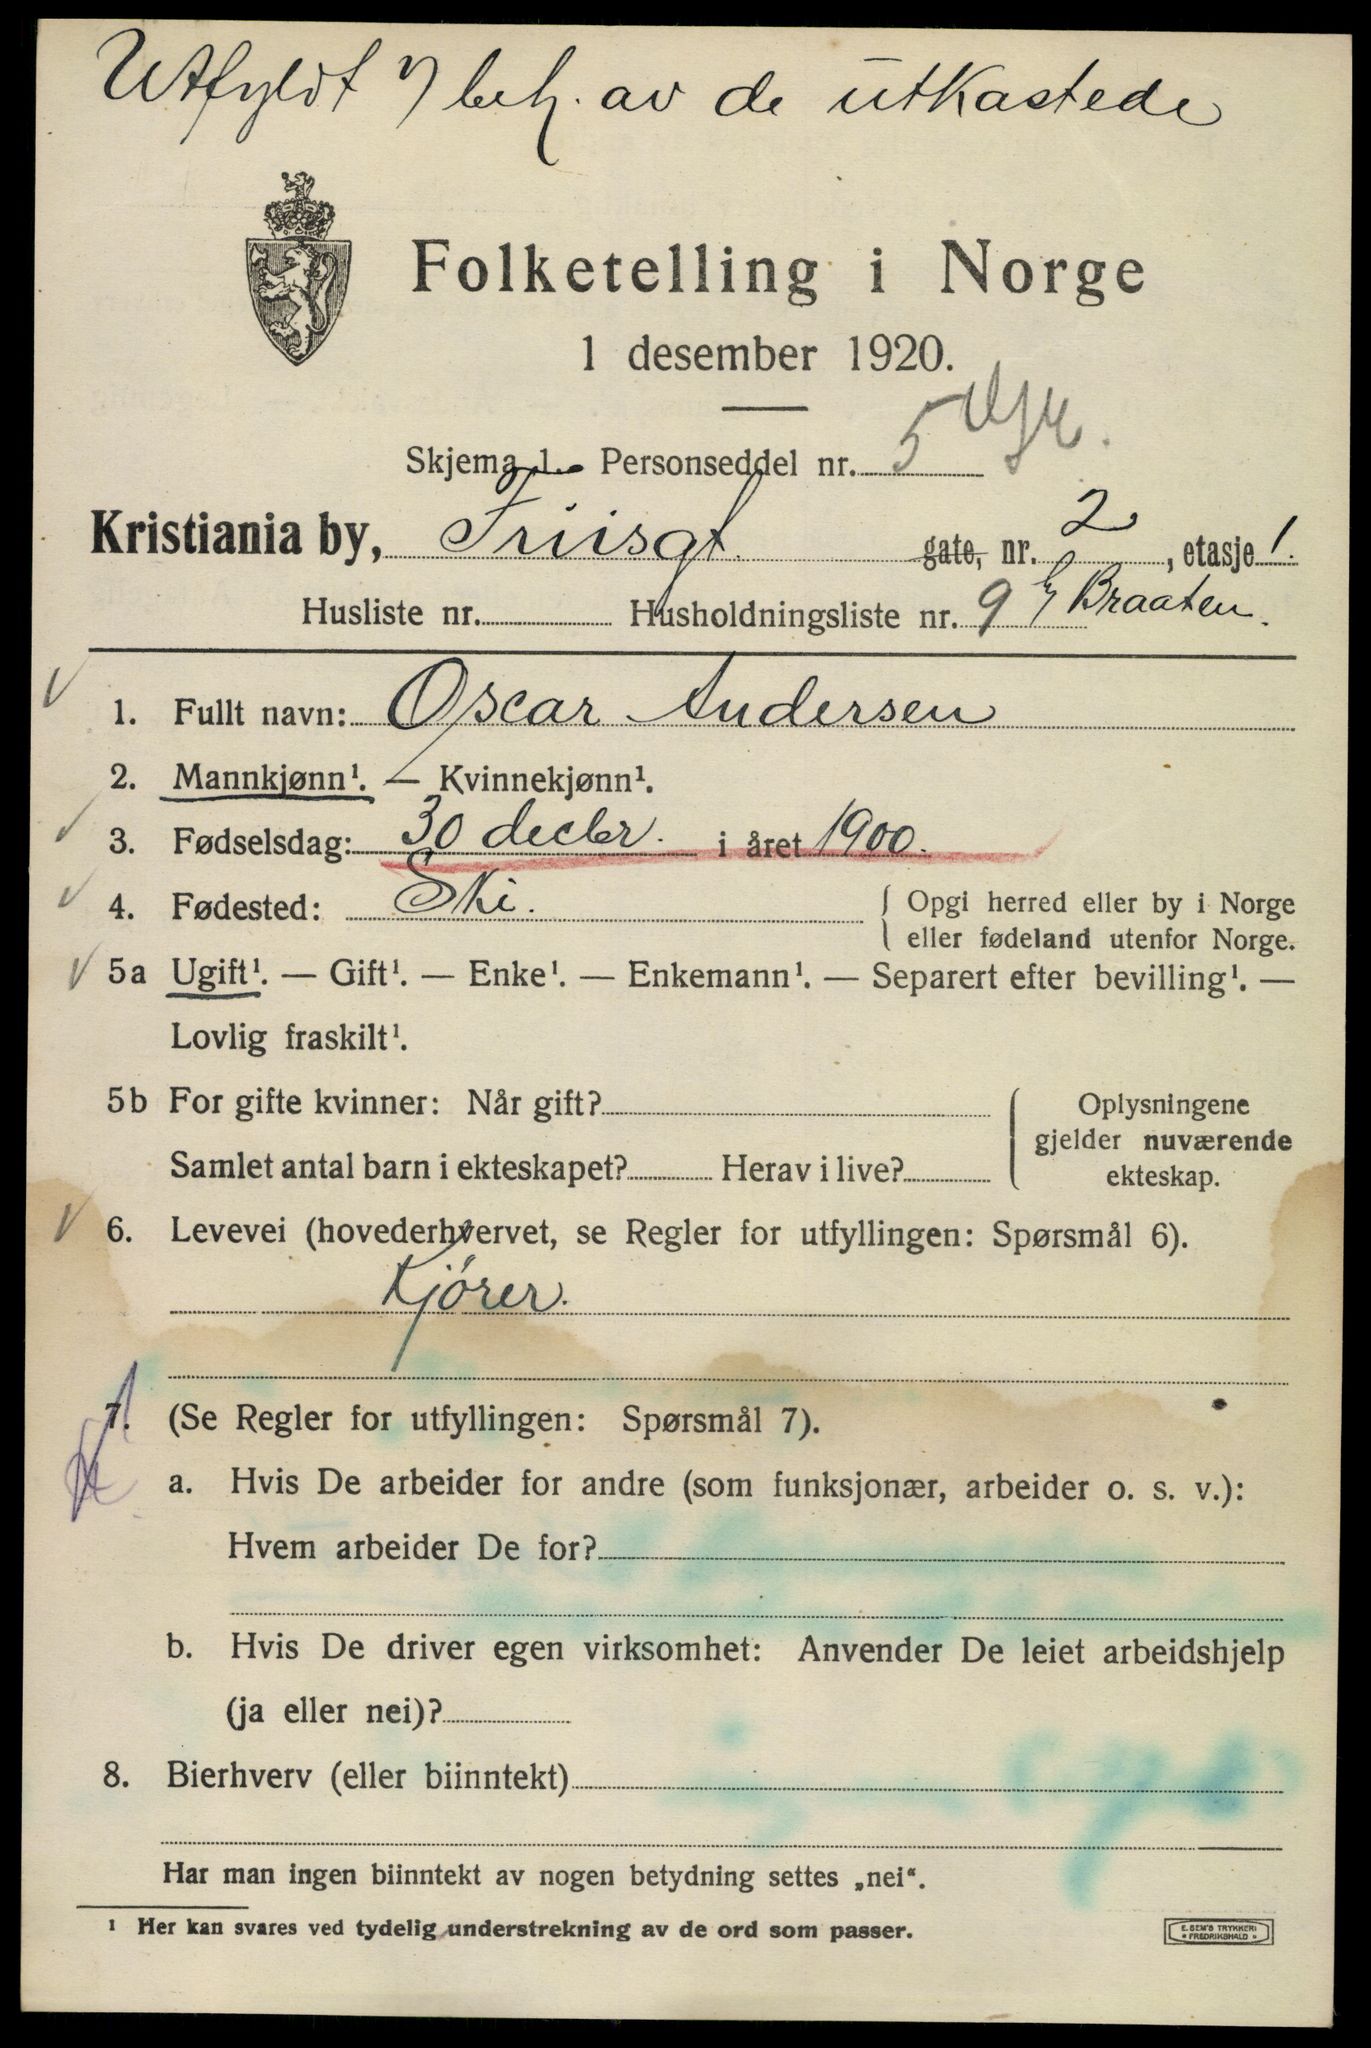 Utfyldt v/ beh. av de utkastede
Folketelling i Norge
1 desember 1920.
Skjema 1. Personseddel nr. 5
Kristiania by, Friisgt. gate, nr. 2, etasje 1.
Husliste nr. Husholdningsliste nr. 9 b/ Braaten.
1. Fullt navn: Oscar Andersen
2. Mannkjønn¹. — Kvinnekjønn¹.
3. Fødselsdag: 30 decbr. i året 1900.
4. Fødested: Ski. { Opgi herred eller by i Norge
eller fødeland utenfor Norge.
5a Ugift¹. — Gift¹. — Enke¹. — Enkemann¹. — Separert efter bevilling¹. —
Lovlig fraskilt¹.
5b For gifte kvinner: Når gift? { Oplysningene
gjelder nuværende
Samlet antal barn i ekteskapet? Herav i live? ekteskap.
6. Levevei (hovederhvervet, se Regler for utfyllingen: Spørsmål 6).
Kjører.
7. (Se Regler for utfyllingen: Spørsmål 7).
a. Hvis De arbeider for andre (som funksjonær, arbeider o. s. v.):
Hvem arbeider De for?
b. Hvis De driver egen virksomhet: Anvender De leiet arbeidshjelp
(ja eller nei)?
8. Bierhverv (eller biinntekt)
Har man ingen biinntekt av nogen betydning settes „nei“.
¹ Her kan svares ved tydelig understrekning av de ord som passer.
E. SEM'S TRYKKERI
* FREDRIKSHALD *